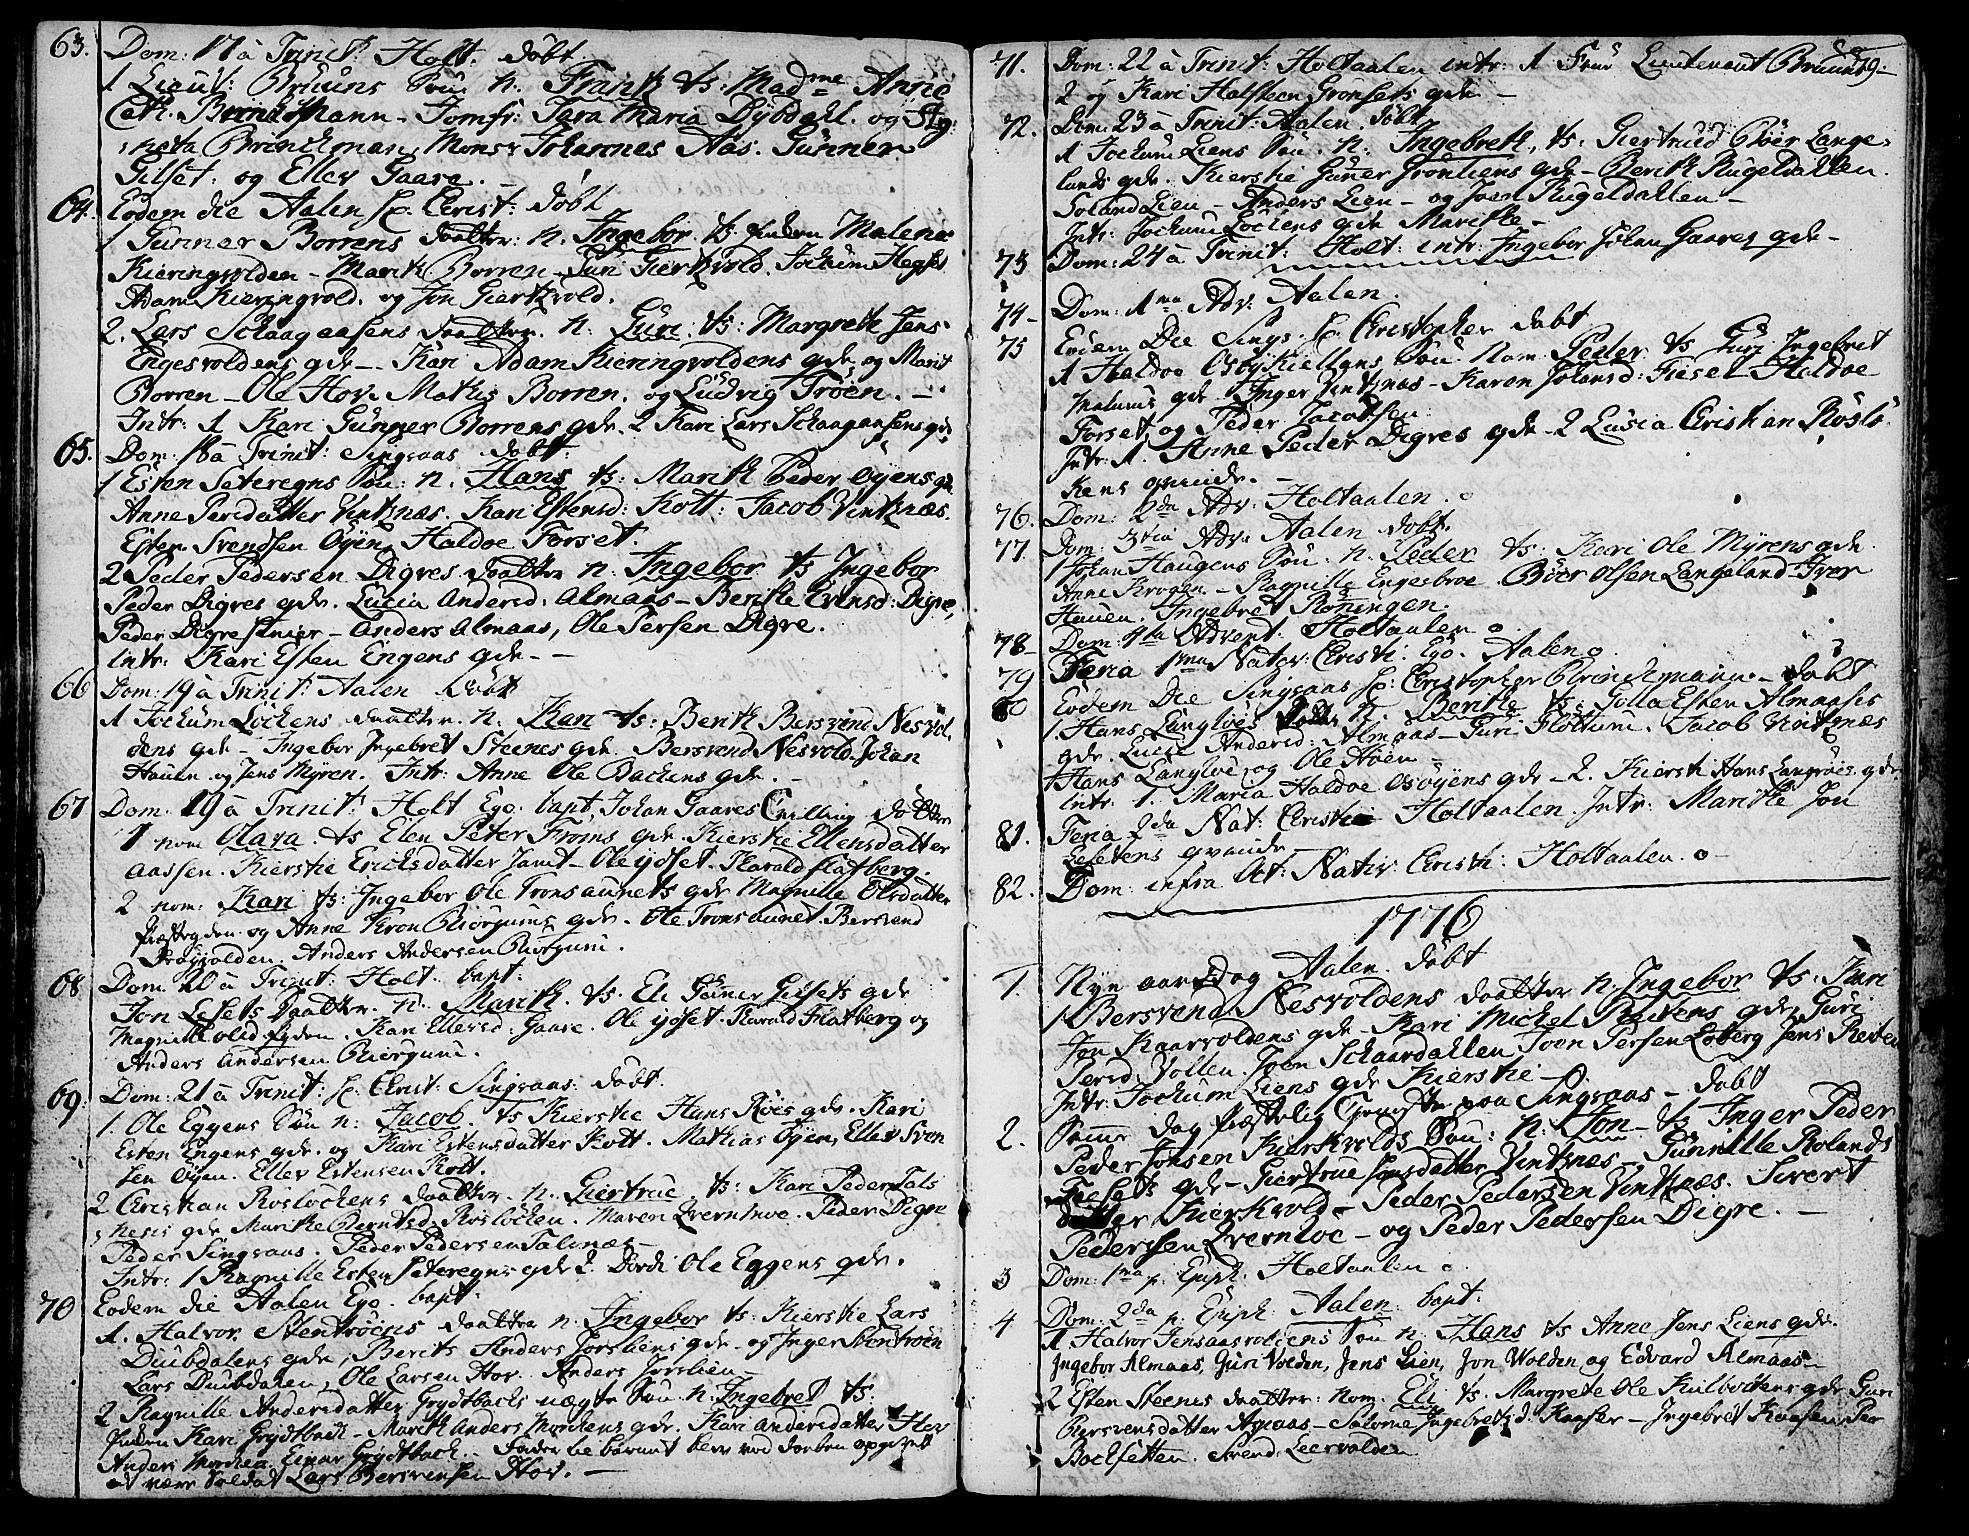 63. Dom: 17 à Trinit: Holt. döbt
1 Lieut: Bruuns Sön n. Frantz ts: Mad:me Anne
Cath. Brinchmann - Jomfr: Sara Maria Dybdahl. og
Brinchman, Mons:r Johannes Aas. Gunner
Gilset. og Eller Gaare. -
64. Eodem die Aalen Hr. Christ: döbt
1 Gunner Borrens daatter: n. Ingebor ts Malene
Kieringvolden - Marit Borren - Guri Giertzvold. Jochum Hegset
Adam Kieringvold. og Jon Giertzvold.
2. Lars Schaagaasens daatter n. Guri: ts: Margrete Jens
Engesvoldens gde - Kari Adam Kieringvoldens gde og Marit
Borren - Ole Hov. Mathis Borren. og Ludvig Tröen. -
Intr: 1 Kari Gunner Borrens gde. 2 Kari Lars Schaagaasens gde
65. Dom. 18 à Trinit: Singsaas döbt:
1 Esten Seteregns Sön: n. Hans ts: Marith Peder Öyens gde
Anne Persdatter Vintznæs. Kari Estensd: Kott. Jacob Vintznæs.
Esten Svendsen Öyen, Haldoe Forset.
2 Peder Pedersen Digres daatter n: Ingebor ts Ingebor
Peder Digres gde. Lucia Andersd: Almaas - Berithe Evensd: Digre,
Peder Digre - Anders Almaas, Ole Persen Digre.
Intr: Kari Esten Engens gde -
66 Dom: 19 à Trinit: Aalen döbt
1 Jochum Löckens daatter. n. Kari ts: Berith Bersvend Nesvol-
dens gde - Ingebor Ingebret Steenes gde. Bersvend Nesvold. Johan
Hauen. og Jens Myren. Intr: Anne Ole Backens gde. -
67 Dom: 19 à Trinit: Holt Ego: bapt, Johan Gaares Tvilling döttre
1 nom Clara. ts Elen Peter Froms gde Kierstie Ellensdatter
Aassen. Kierstie Erichsdatter Jamt - Ole ydset. Harald Flatberg.
2 nom: Kari ts: Ingebor Ole Tronsaunets gde Magnille Olsdatter
præstegden og Anne Kron Biorgums gde. Ole Tronsaunet. Bersvend
Anders Andersen Biorgum.
68 Dom 20 à Trinit: Holt: bapt:
Jon Lesets Daatter. n. Marith. ts. Eli Guner Gilsets gde
Magnille Olsd. Kari Ellersd: Gaare. Ole ydset. Harald Flatberg og
Anders Andersen Biorgum.
69. Dom: 21 à Trinit: Hr. Christ: Singsaas: döbt.
1. Ole Eggens Sön n: Jacob. ts Kierstie Hans Röes gde. Kari
Esten Engens gde. og Kari Estensdatter Kott. Mathias Öyen, Eller Sven
sen Öyen. Eller Estensen Kott.
2 Christian Roslöckens daatter n. Giertrue ts: Kari Peder Tals
nesis gde. Marithe Berntsd: Roslöcken. Maren Qvernmoe. Peder Digre
Peder Singsaas. Peder Pedersen Talsnæs -
Intr: 1 Ragnille Esten Seteregns gde 2 Dordi Ole Eggens gde.
70 Eodem die Aalen Ego. bapt:
1. Halvor Stentröens daatter n. Ingebor ts: Kierstie Lars
Duubdalens gde, Berits Anders Jorsliens gde - og Inger Stentröen
Lars Duubdalen, Ole Larsen Hov. Anders Jorslien -
2 Ragnille Andersdatter Grydtbachs uægte Sön n. Ingebret ts
Kari Grydtbach - Marith Anders Mordiens gde. Kari Andersdatter Hov
Anders Mordien. Einar Grydtbach. - Fader til barnet blev ved daaben opgivet
at være Soldat Lars Bersvensen Hov. -
71. Dom: 22 à Trinit: Holtaalen intr: 1 Frue Lieutenant Bruun
2 og Kari Halsteen Gronsets gde -
72. Dom: 23 à Trinit: Aalen. döbt
1 Jochum Liens Sön. n. Ingebreth, ts: Giertrud Böer Lange-
lands gde. Kierstie Guner Grönliens gde - Berith Rugeldallen.
Lien - Anders Lien - og Joen Rugeldallen -
Intr: Jochum Löckens gde Marithe -
73 Dom: 24 à Trinit: Holt: intr: Ingebor Johan Gaares gde -
74 - Dom: 1ma Adv: Aalen.
75 Eodem Die Sings. Hr. Christopher döbt
1 Haldoe Sön: Nom Peder ts Guri Ingebret
gde. Inger Vintznæs - Karen Johansd: Haldoe
Forset, og Peder Jacobsen.
Intr: 1. Anne Peder Digres gde - 2 Lusia Christian Röslö
kens qvinde. -
76. Dom: 2da Adv: Holtaalen. o
77. Dom: 3tia Adv: Aalen döbt.
1 Johan Haugens Sön. n. Peder ts: Kari Ole Myrens gde.
Anne Krogen - Ragnille Engesbroe. Böer Olsen Langeland Iver
Hauen. Ingebret Röningen.
78 - Dom: 4ta Advent. Holtaalen o
79 Feria 1ma Nativ: Christi. Ego. Aalen o.
80 Eodem Die Singsaas Hr: Christopher Brinchmann - döbt
1. Hans Langloes n. Berithe ts: Golla Esten Almaases
gde. Lucie Andersd: Almaas - Guri Flöttum. Jacob Vintznæs
Hans og Ole Höen -
Intr: 1. Maria Haldoe Osöyens gde - 2. Kiersti Hans Langloes gde
81. Feria 2da Nat: Christi Holtaalen. Intr: Marithe Jon
Lesetens qvinde -
82. Dom: infra Oct: Nativ: Christi: Holtaalen. o -
1776
1. Nyn aarsdag Aalen. döbt
1 Bersvend Nesvoldens daatter n. Ingebor ts: Kari
Jon Kaarvoldens gde - Kari Michel Reitens gde, Guri
Persd: Vollen. Joen Schaardallen Joen Persen Loberg Jens Reiten
Intr: Jochum Liens gde Kierstie -
2. Samme dag præstelig Tienneste paa Singsaas - döbt
Peder Jonsen Kierkvolds Sön: n: Jon - ts Inger Peder
gde - Giertrue Jonsdatter Vintznæs - Gunnille Rolands
datter Kierkvold - Peder Pedersen Vintznæs. Sivert
Pedersen Qvernmoe - og Peder Pedersen Digre. -
3 Dom: 1ma p. Epiph: Holtaalen o.
4 Dom: 2da p. Epiph: Aalen bapt:
1 Halvor Jensaasvoldens Sön n: Hans ts Anne Jens Liens gde.
Ingebor Almaas, Guri Volden, Jens Lien, Jon Wolden og Edvard Almaas -
2 Esten Steenes daatter: nom: Eli ts. Margrete Ole Kulbottens gde Guri
Bersvensdatter Aynaas - Salome Ingebretsd: Kaasen - Ingebret Kaasen Per
Bochsetten. Svend Leervolden